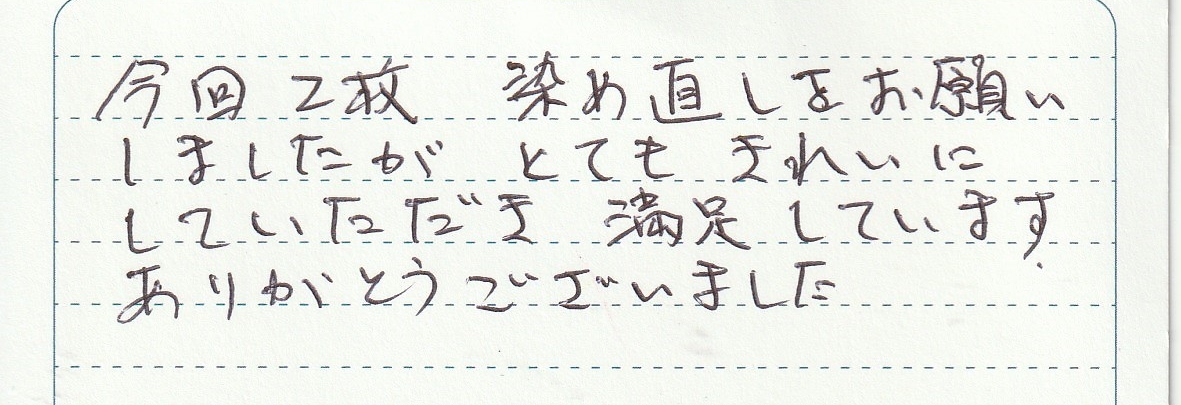 今回2枚 染め直しをお願い
しましたが とても きれいに
していただき 満足しています.
ありがとうございました